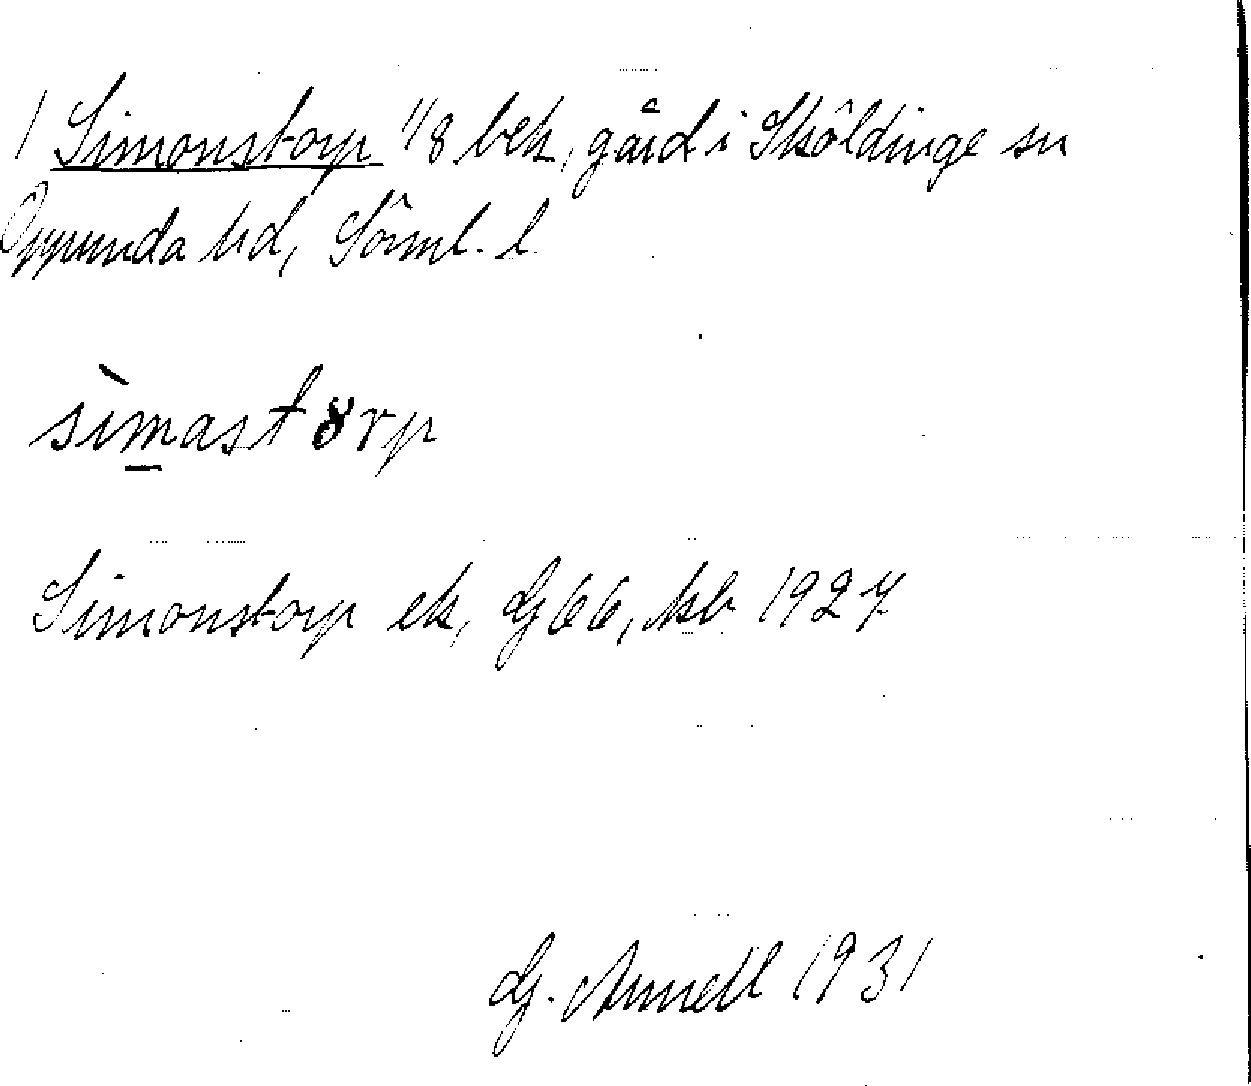 1 Simonstorp 1/8 bek, gård i Sköldinge sn
Oppunda hd, Sörml. l.
sìmastɤrp
Simonstorp ek, G 66, kb 1927
G. Annell 1931